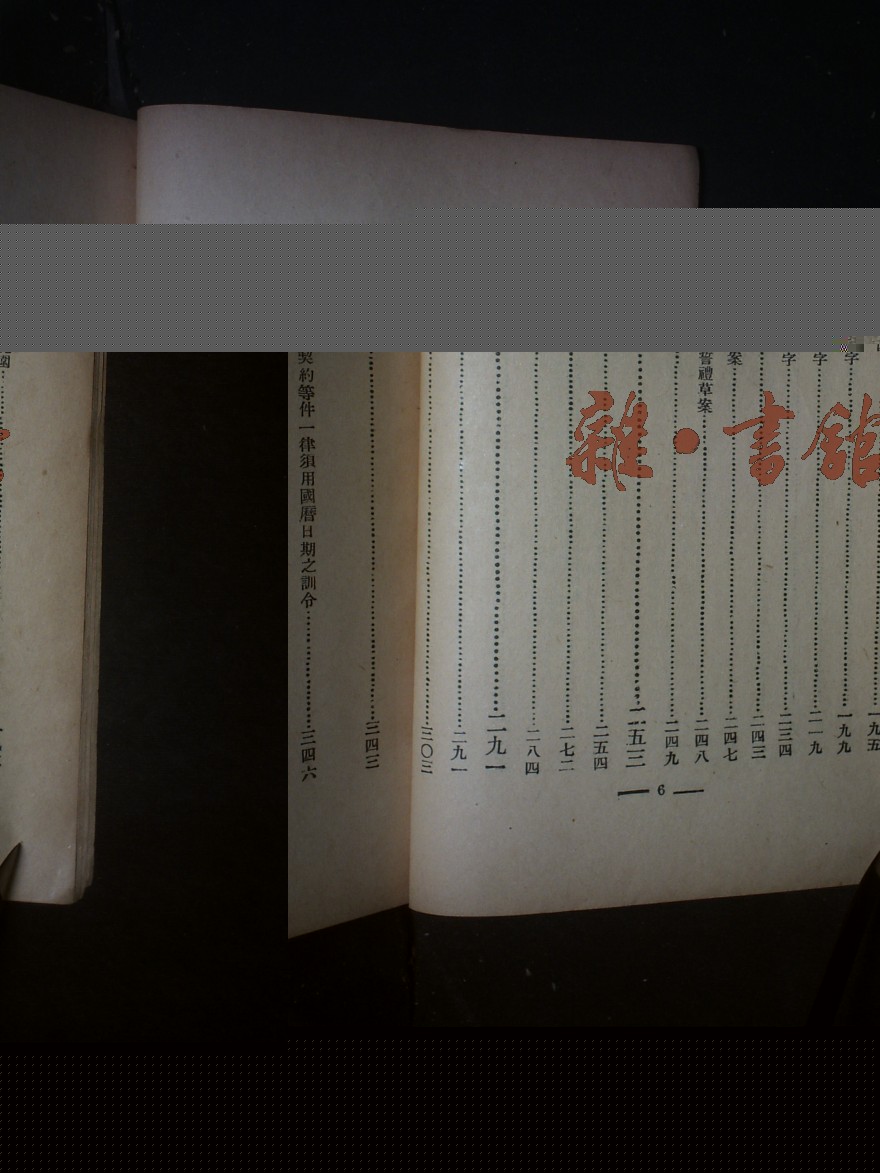 ……一九五
字……一九九
字……二一九
字……二三四
……二四三
案……二四七
誓禮草案……二四八
……二四九
……二五三
……二五四
……二七二
……二八四
……二九一
……二九一
……三〇三
— 6 —
……三四三
契約等件一律須用國曆日期之訓令……三四六
雜·書館